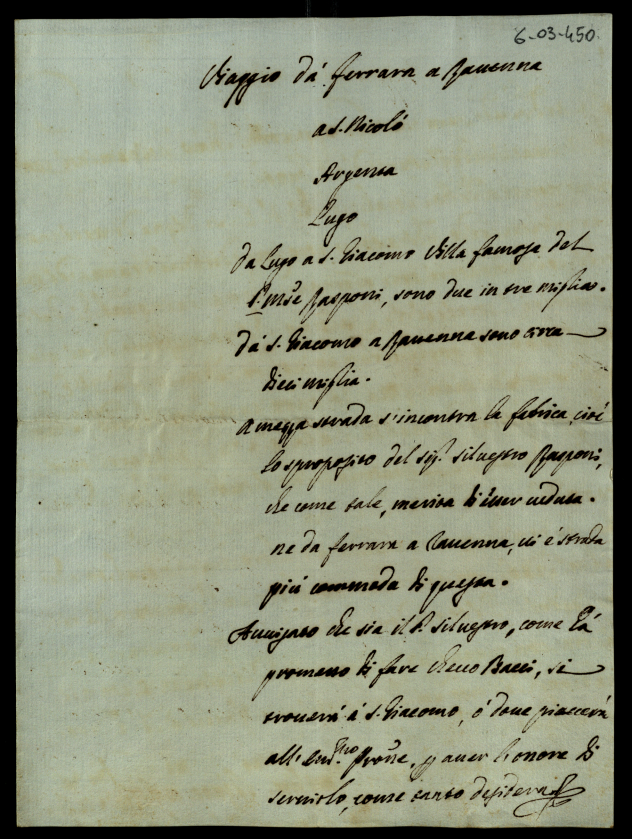 6-03-450.
Viaggio dá Ferrara a Ravenna
a S. Nicoló
Argenta
Lugo
da Lugo a S. Giacomo Villa famosa del
S.r Mse Rasponi, sono due in tre miglia.
dá S. Giacomo a Ravenna sono circa
dieci miglia.
A mezza strada s'incontra la fabrica, cioé
lo sproposito del sig.r Silvestro Rasponi,
che come tale, merita di esser veduta.
ne da Ferrara a Ravenna, vi é strada
piú commoda di questa.
Avvisato che sia il S.r Silvestro, come há
promesso di fare Checco Bacci, si
troverá á S. Giacomo, ó dove piacerá
all' Em.mo Prone, p aver l'onore di
servirlo, come tanto desidera